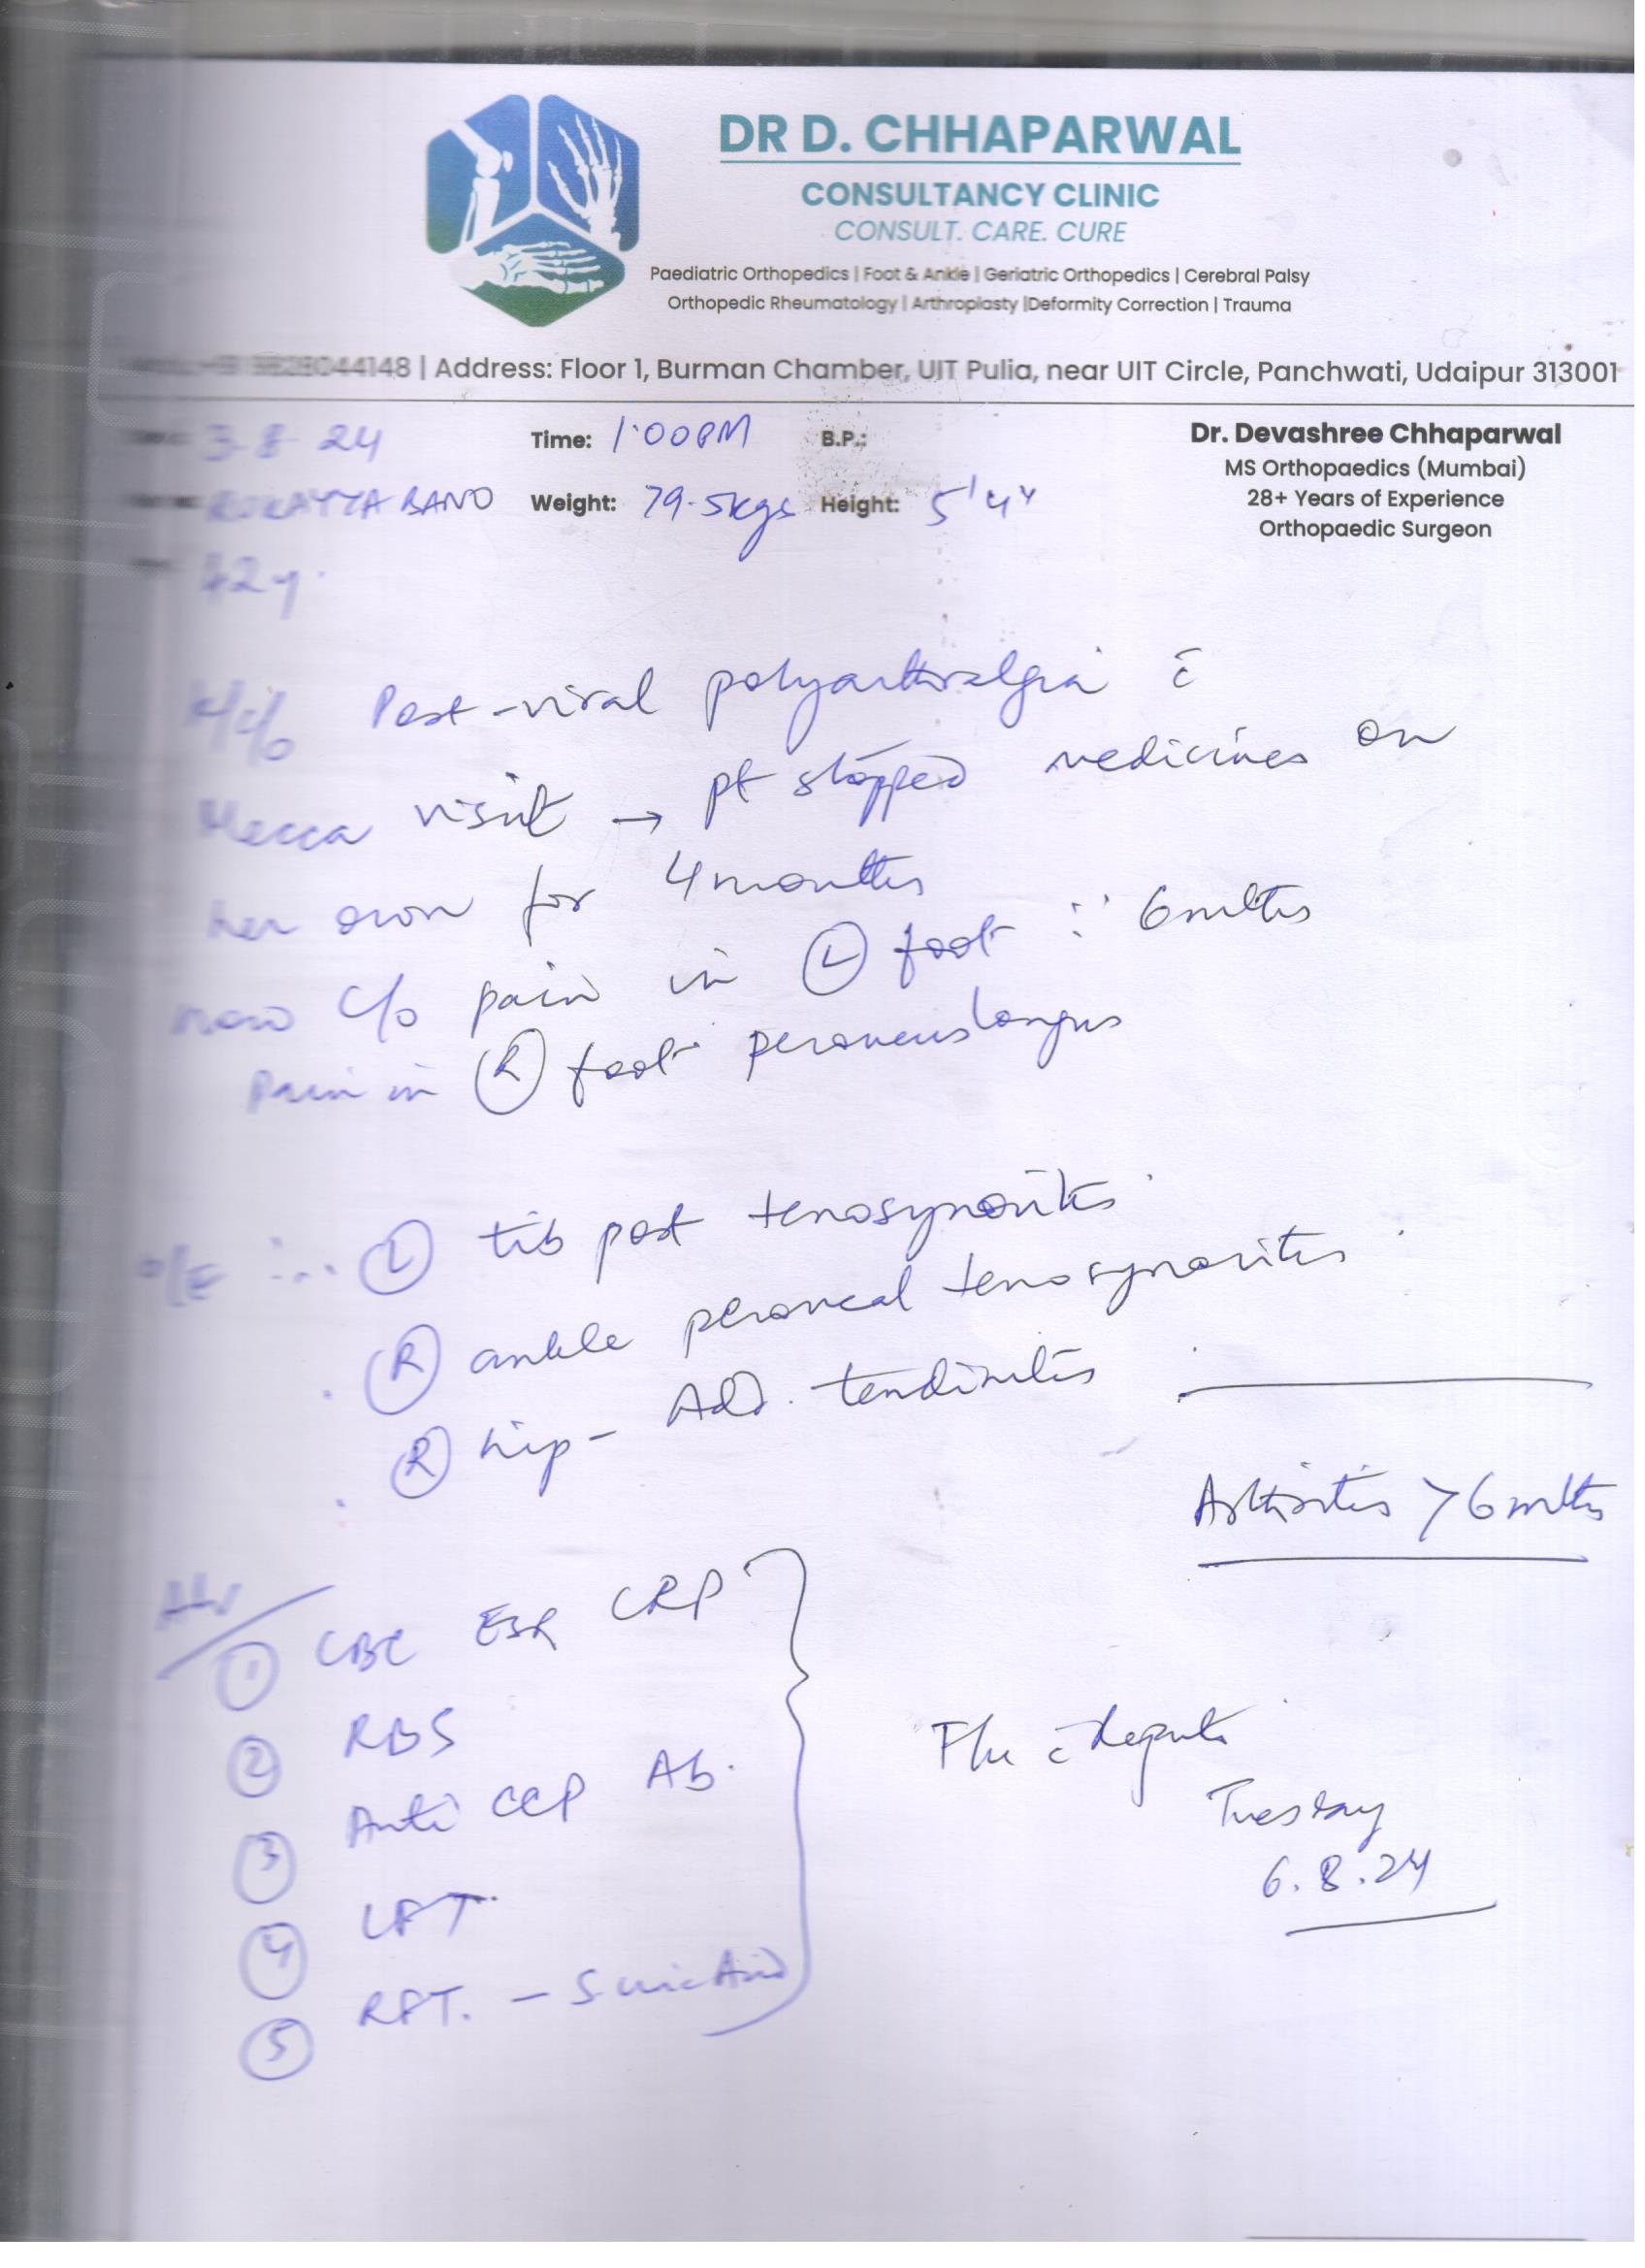 DR D. CHHAPARWAL
CONSULTANCY CLINIC
CONSULT. CARE. CURE
Paediatric Orthopedics | Foot & Ankle | Geriatric Orthopedics | Cerebral Palsy
Orthopedic Rheumatology | Arthroplasty |Deformity Correction | Trauma
9828044148 | Address: Floor 1, Burman Chamber, UIT Pulia, near UIT Circle, Panchwati, Udaipur 313001
3 8 24 Time: 1:00PM B.P.:
BANO Weight: 79.5kgs Height: 5'4"
Dr. Devashree Chhaparwal
MS Orthopaedics (Mumbai)
28+ Years of Experience
Orthopaedic Surgeon
Post-viral polyarthralgia c̄
Mecca visit → pt stopped medicines on
her own for 4 months
now c/o pain in (L) foot 6mths
pain in (R) foot peroneus longus
o/E (L) tib post tenosynovitis
(R) ankle peroneal tenosynovitis
(R) hip - Add. tendinitis
Arthritis >6mths
Adv
1 CBC ESR CRP
2 RBS
3 Anti CCP Ab.
4 LFT
5 RFT. - S uric Acid
Tuesday
6.8.24